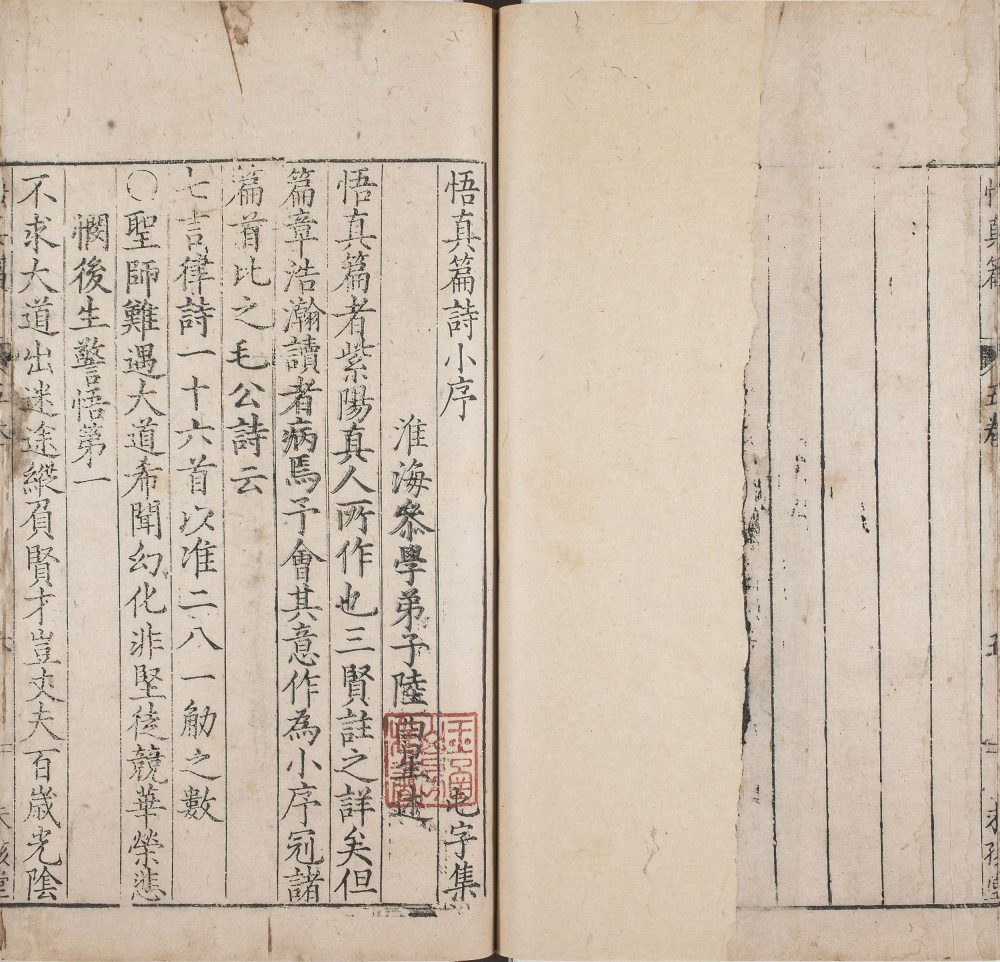 悟真篇 五卷
五
悟真篇詩小序
七字集
淮海參學弟子陸
述
悟真篇者紫陽真人所作也三賢註之詳矣但
篇章浩瀚讀者病焉予會其意作為小序冠諸
篇首比之毛公詩云
七言律詩一十六首以准二八一觔之數
〇聖師難遇大道希聞幻化非堅徒競華榮悲
憫後生警悟第一
不求大道出迷途縱負賢才豈丈夫百歲光陰